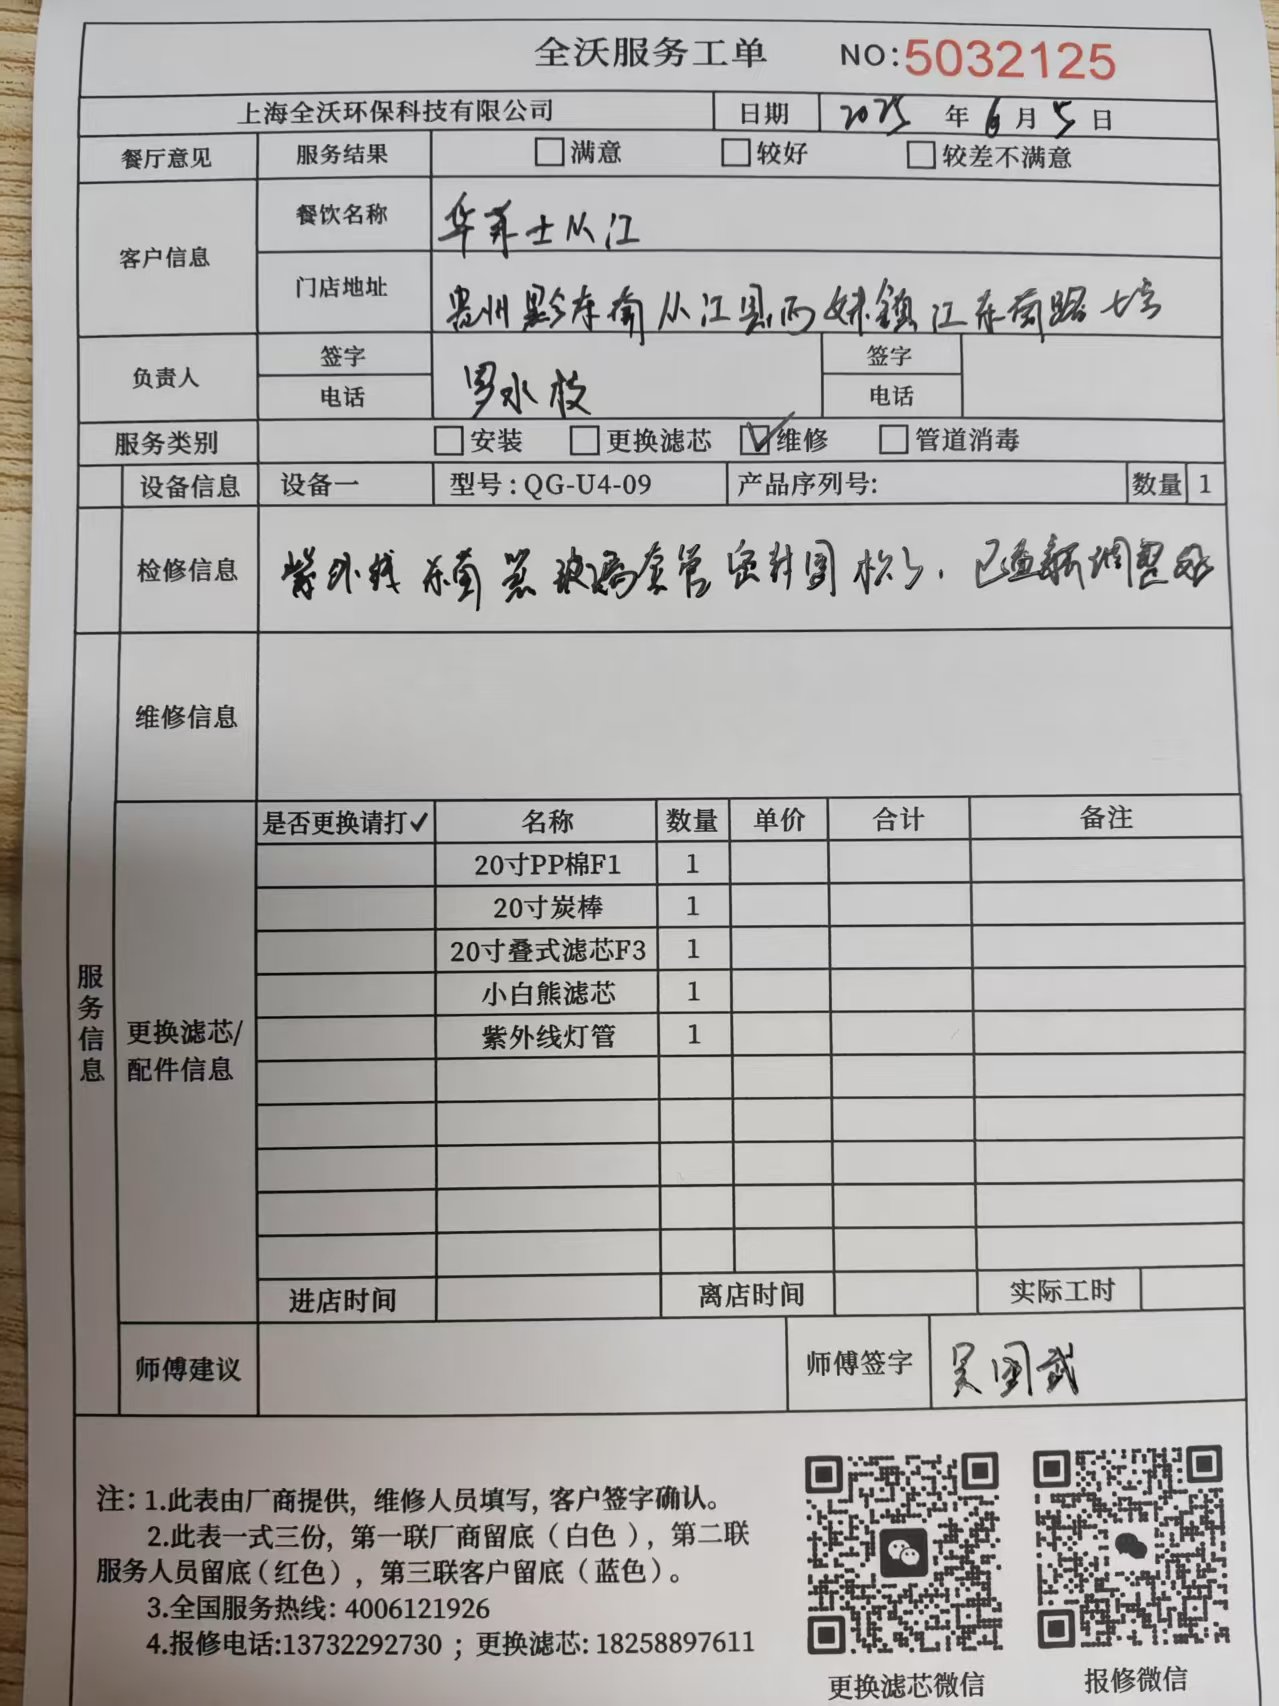 全沃服务工单 NO:5032125
上海全沃环保科技有限公司 日期 2025 年 6 月 5 日
餐厅意见 服务结果 满意 较好 较差不满意
客户信息 餐饮名称 华莱士从江
门店地址 贵州黔东南从江县丙妹镇江东南路
负责人 签字 罗水枝 签字
电话 电话
服务类别 安装 更换滤芯 ✓维修 管道消毒
设备信息 设备一 型号:QG-U4-09 产品序列号: 数量 1
检修信息 紫外线 玻璃套管密封圈松了,已重新调整好
维修信息
服务信息
更换滤芯/配件信息
是否更换请打✓ 名称 数量 单价 合计 备注
20寸PP棉F1 1
20寸炭棒 1
20寸叠式滤芯F3 1
小白熊滤芯 1
紫外线灯管 1
进店时间 离店时间 实际工时
师傅建议 师傅签字 吴国武
注:1.此表由厂商提供,维修人员填写,客户签字确认。
2.此表一式三份,第一联厂商留底(白色),第二联
服务人员留底(红色),第三联客户留底(蓝色)。
3.全国服务热线:4006121926
4.报修电话:13732292730;更换滤芯:18258897611
更换滤芯微信 报修微信